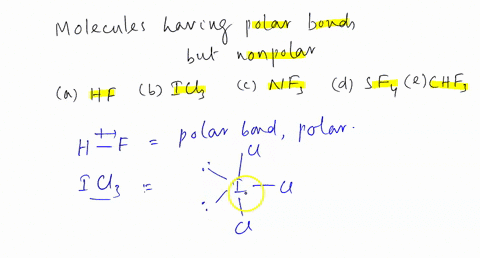 Molecules having polar bonds
but nonpolar
(a) HF (b) ICl3 (c) NF3 (d) SF4 (e) CHF3
H-F = polar bond, polar.
ICl3 =
Cl
I - Cl
Cl